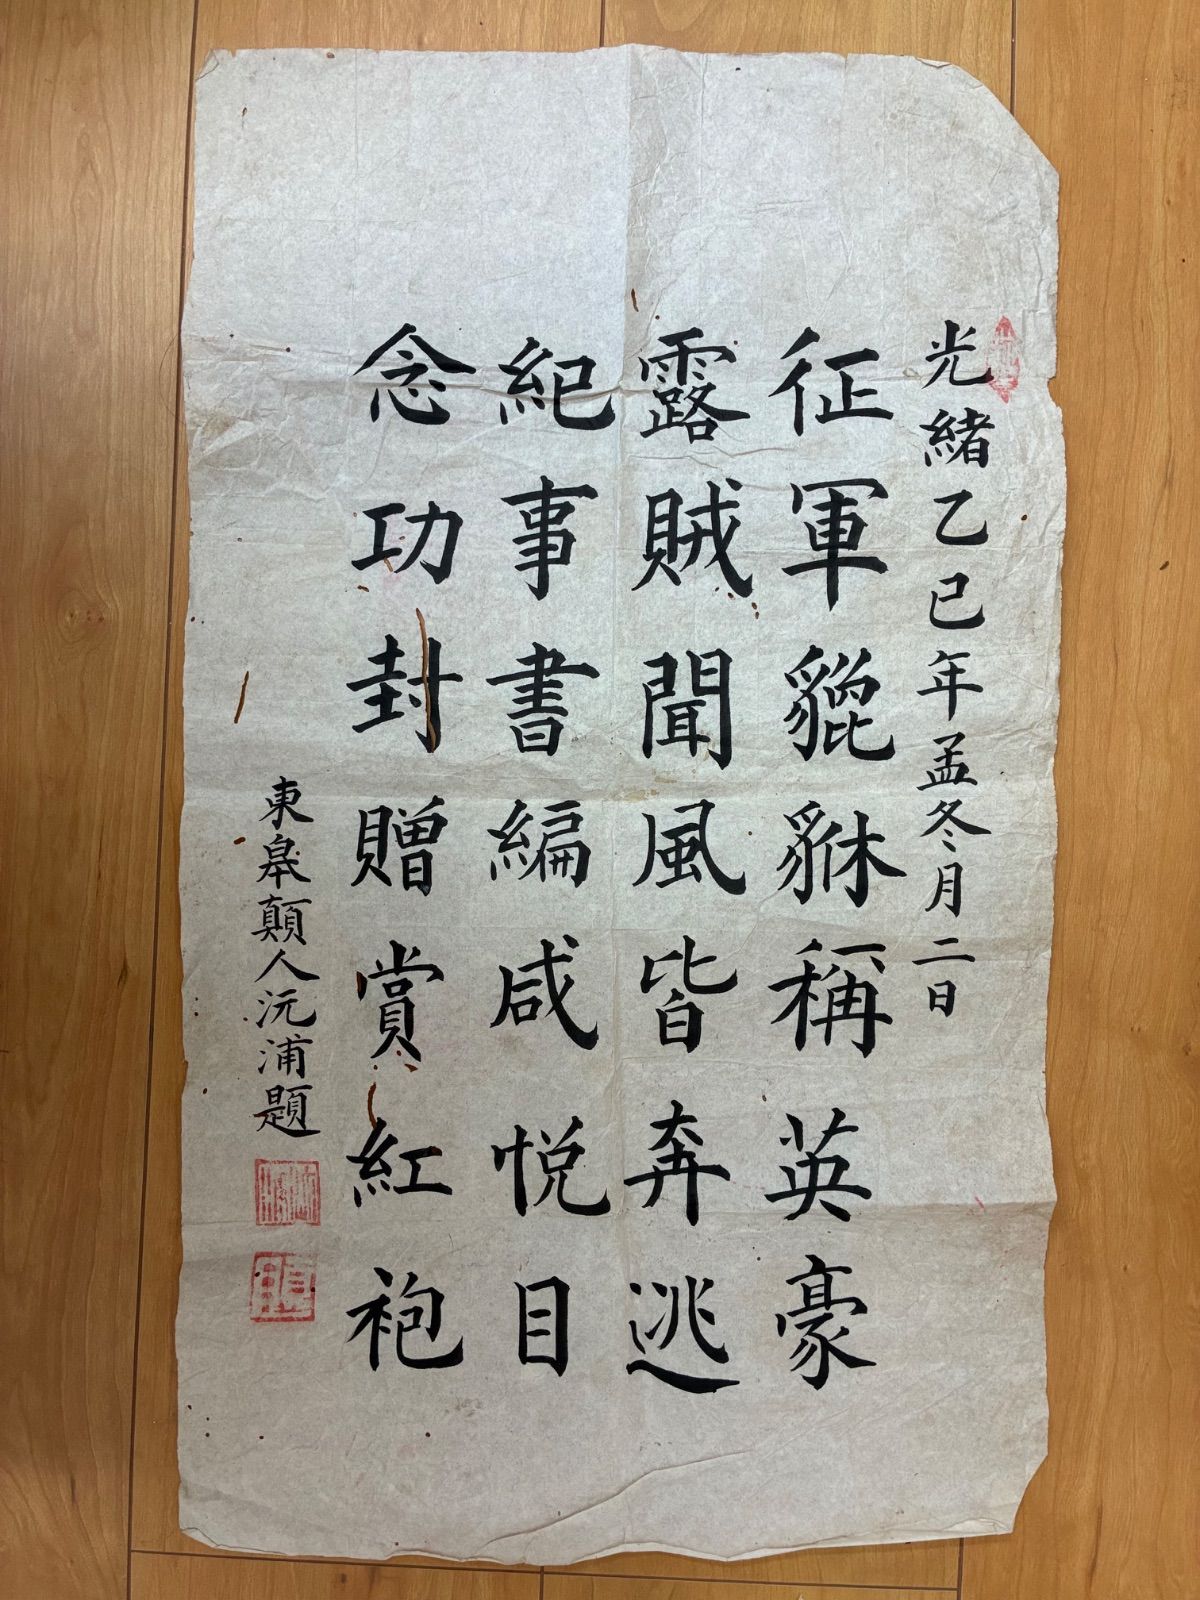 光緒乙巳年孟冬月二日
征軍貔貅稱英豪
露賊聞風皆奔逃
紀事書編咸悦目
念功封贈賞紅袍
東皋顛人沅浦題